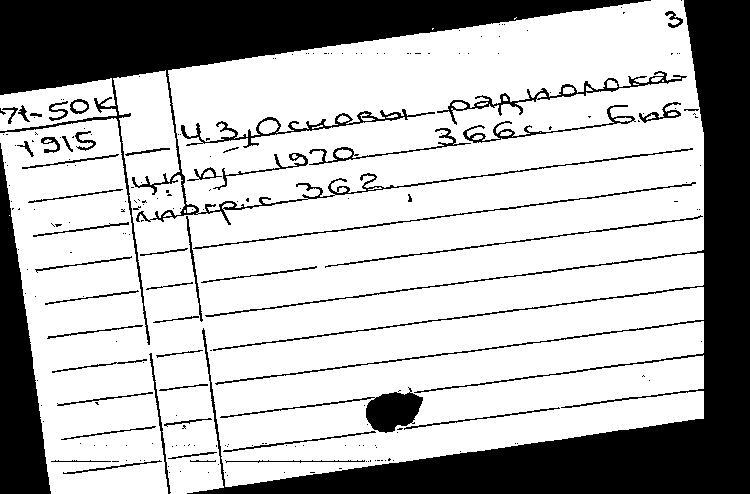 3
71-50К
1915
Ч.3, Основы радиолока-
ции, 1970 366с. Биб-
лиогр: с 362.